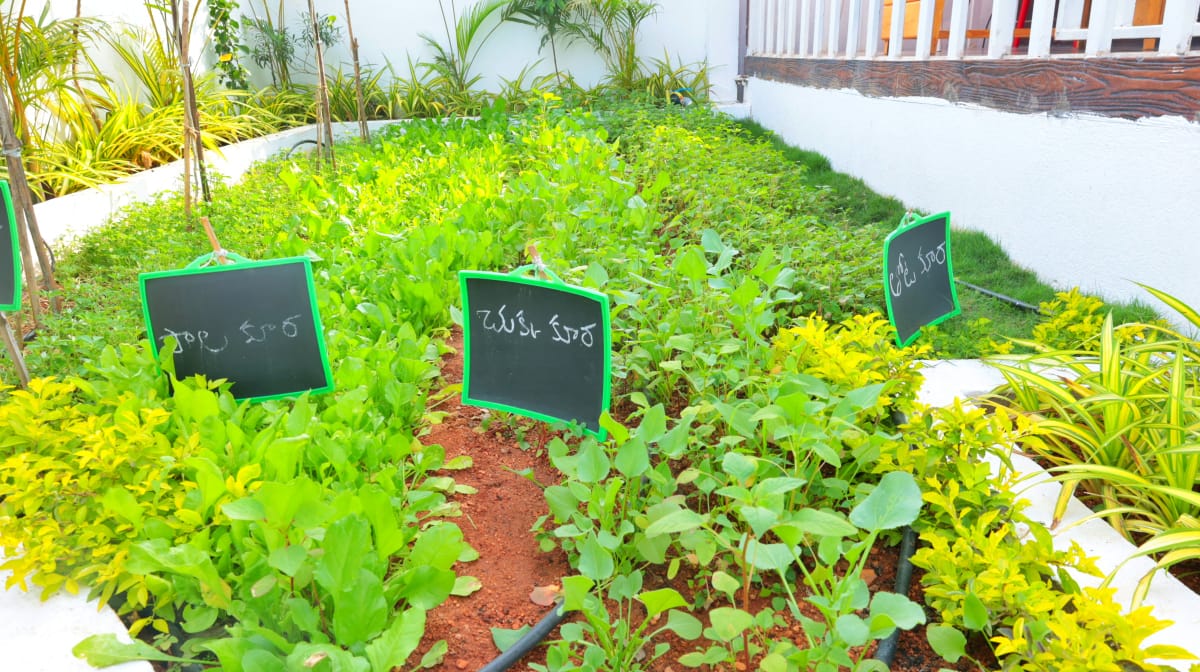 పాల కూర
చుక్క కూర
తోట కూర